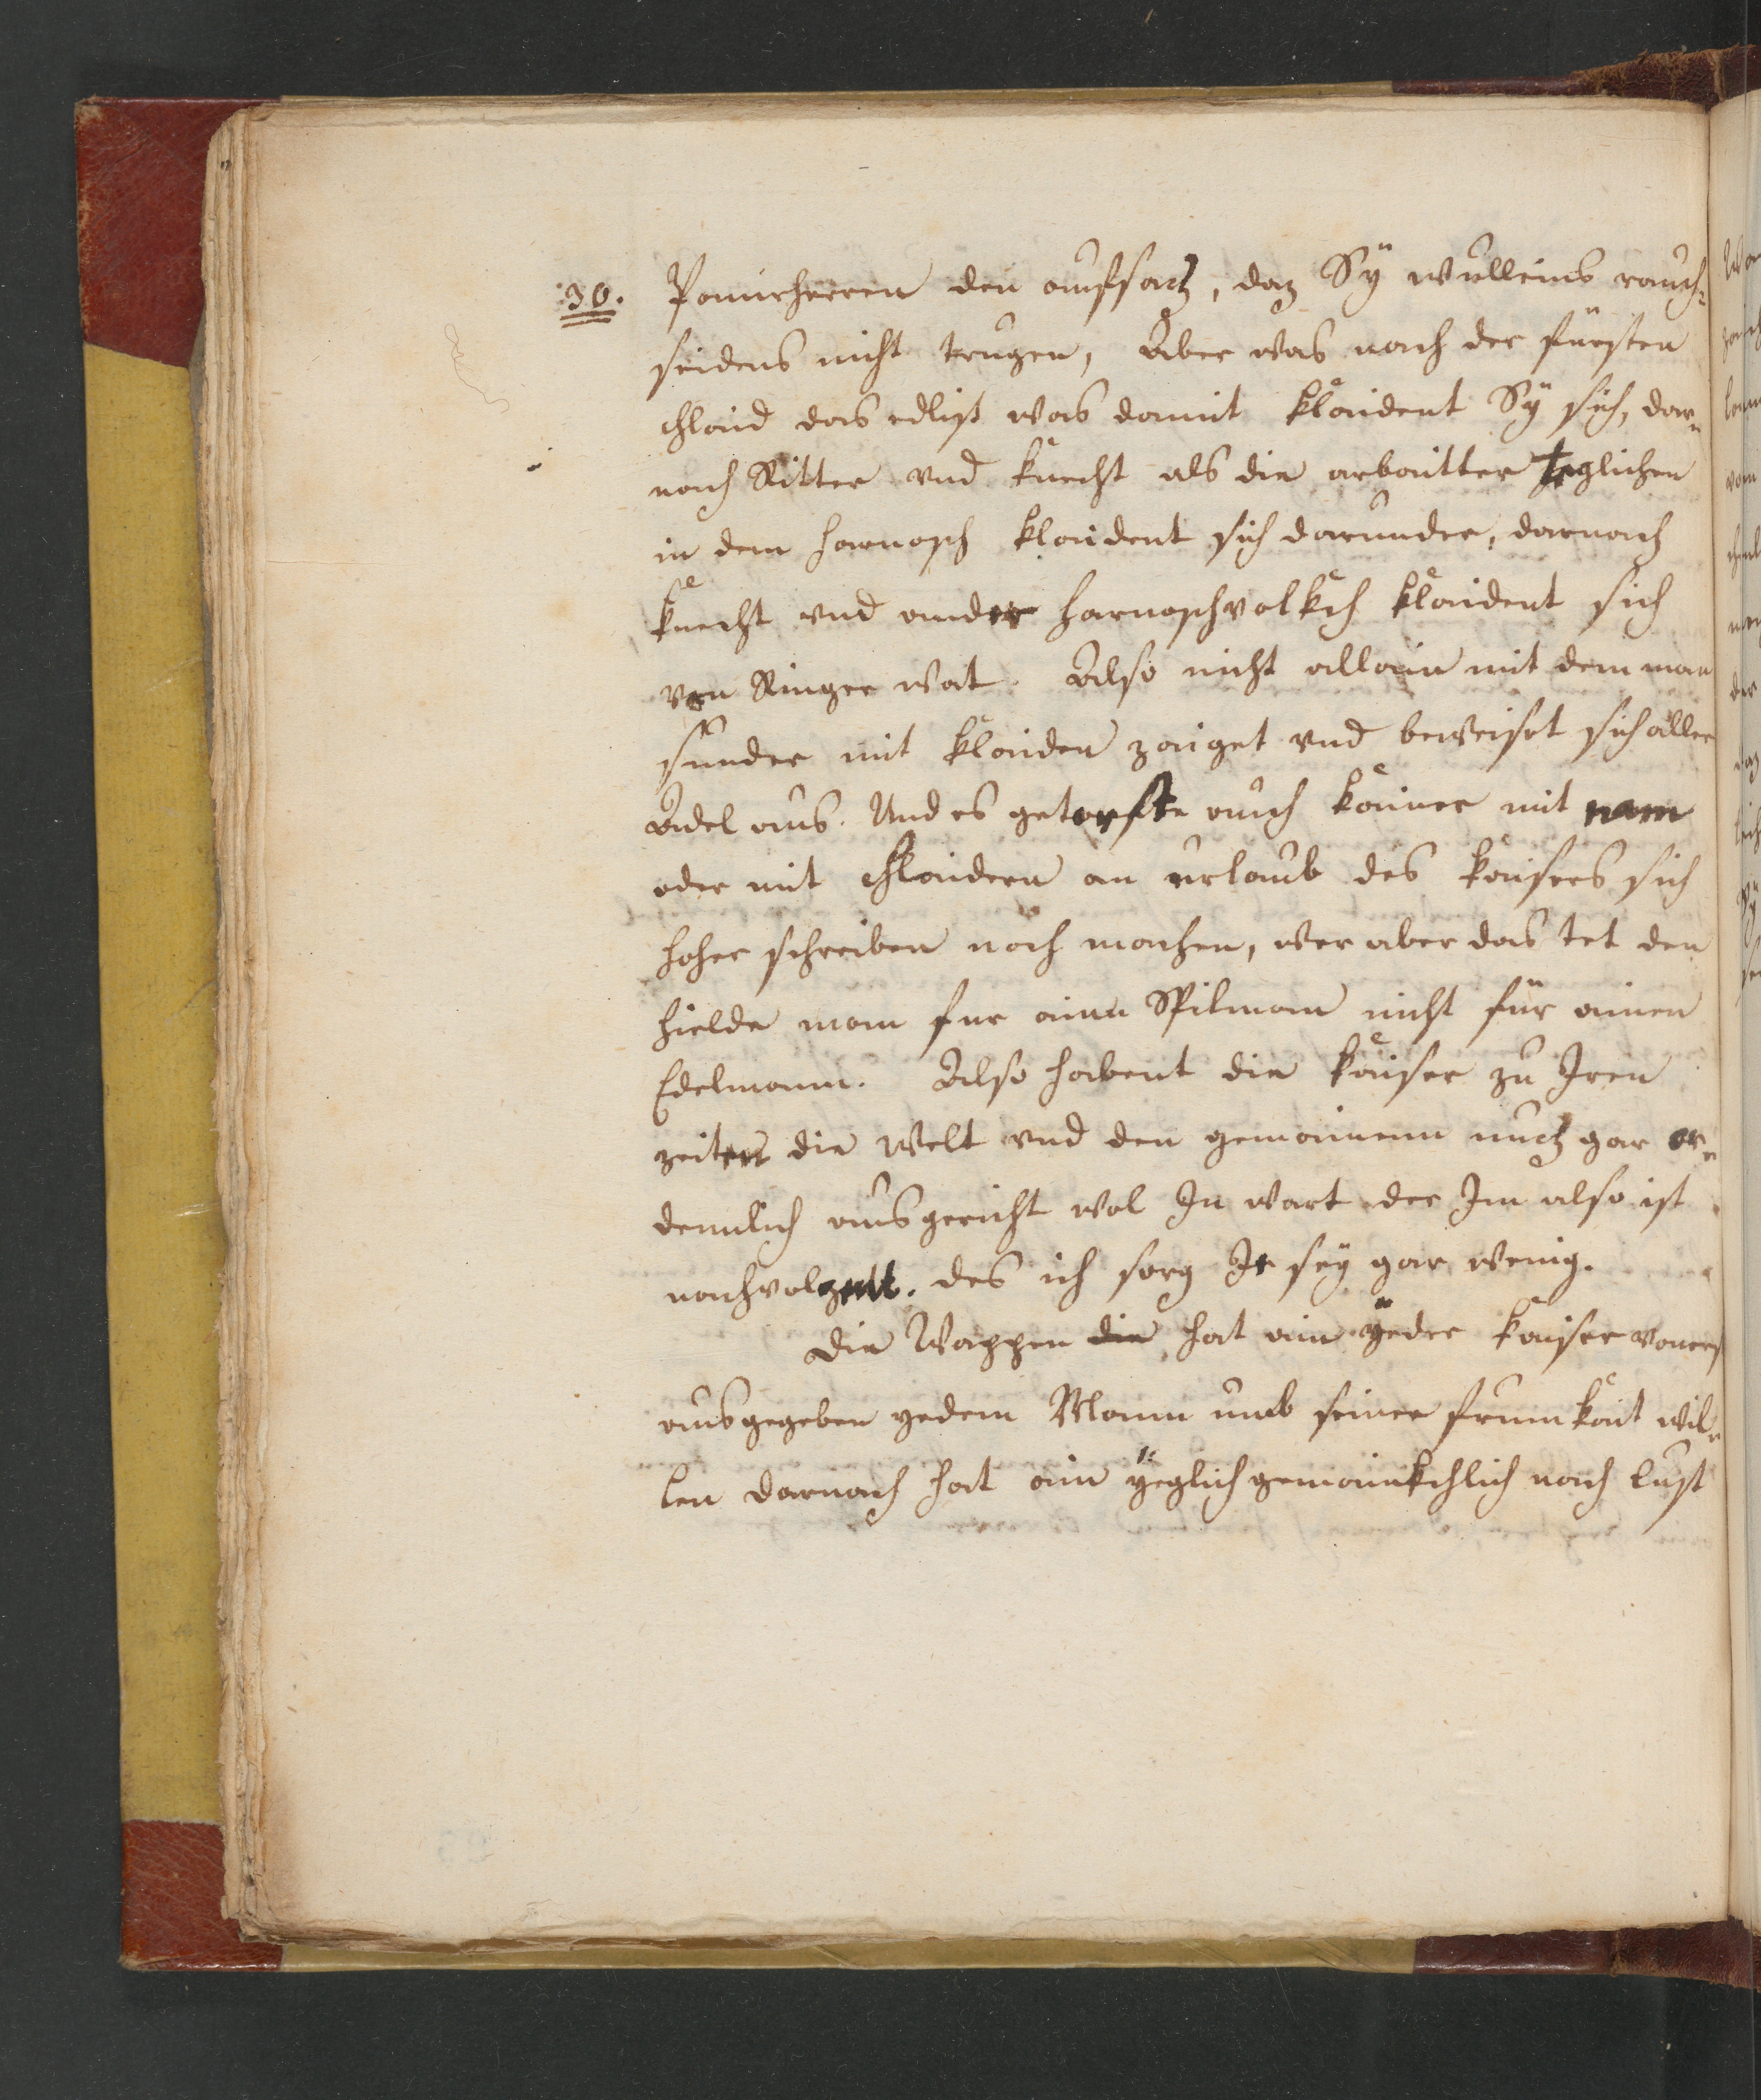 30.
Panirherren den aufsacz, daz Sÿ wulleins rauch-
seidens nicht trugen, Aber was nach der fürsten
chlaid das edlist was damit klaident Sÿ sich, dar-
nach Ritter vnd knecht als die arbaitter teglichen
in dem harnasch klaident sich darunder, darnach
knecht vnd ander harnaschvolkch klaident sich
von Ringer wat. Also nicht allain mit dem man
sunder mit klaiden zaiget vnd beweiset sich aller
Adel aus. Und es getorste auch kainer mit nam
oder mit chlaidern an urlaub des kaisers sich
hoher schreiben noch machen, wer aber das tet den
hielde man fur ainn Spilman nicht für ainen
Edelmann. Also habent die kaiser zu Iren
zeiten die welt vnd den gemainenn nucz gar or-
dennlich ausgericht wol In wart der Im also ist
nachvolzutt. des ich sorg Ir sey gar wenig.
Die Wappen die hat ain yeder kaiser vonerst
ausgegeben yedem Mann umb seiner frumkait wil-
len darnach hat ain yeglich gemainkchlich nach lust